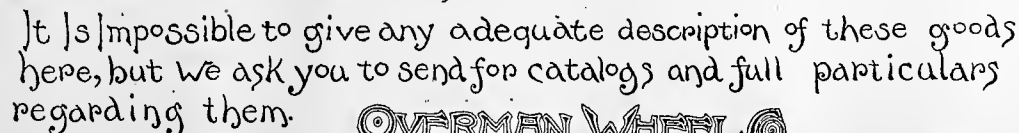 It Is Impossible to give any adequate description of these goods
here, but We ask you to send for catalogs and full particulars
regarding them.
OVERMAN WHEEL